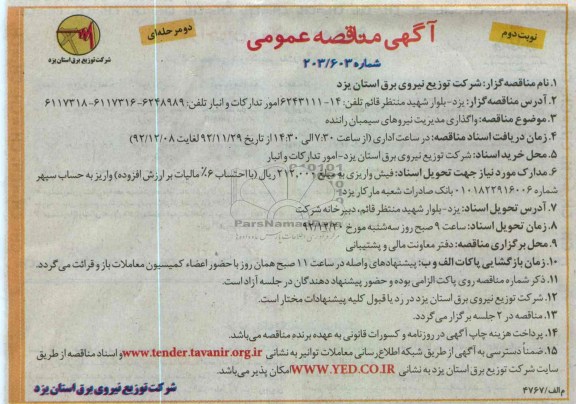 نوبت دوم
آگهی مناقصه عمومی
دو مرحله‌ای
شماره ۲۰۳/۶۰۳
شرکت توزیع نیروی برق استان یزد
۱. نام مناقصه گزار: شرکت توزیع نیروی برق استان یزد
۲. آدرس مناقصه گزار: یزد-بلوار شهید منتظر قائم تلفن: ۱۴-۶۲۴۳۱۱۱ امور تدارکات و انبار تلفن: ۶۲۴۸۹۸۹-۶۱۱۷۳۱۶-۶۱۱۷۳۱۸
۳. موضوع مناقصه: واگذاری مدیریت نیروهای سیمبان راننده
۴. زمان دریافت اسناد مناقصه: در ساعت اداری (از ساعت ۷:۳۰ الی ۱۴:۳۰ از تاریخ ۹۲/۱۱/۲۹ لغایت ۹۲/۱۲/۰۸)
۵. محل خرید اسناد: شرکت توزیع نیروی برق استان یزد-امور تدارکات و انبار
۶. مدارک مورد نیاز جهت تحویل اسناد: فیش واریزی به مبلغ ۲۱۲,۰۰۰ ریال (با احتساب ۶٪ مالیات بر ارزش افزوده) واریز به حساب سپهر
شماره ۰۱۰۱۸۲۲۹۱۶۰۰۶ بانک صادرات شعبه مارکار یزد
۷. آدرس تحویل اسناد: یزد-بلوار شهید منتظر قائم، دبیرخانه شرکت
۸. زمان تحویل اسناد: ساعت ۹ صبح روز سه‌شنبه مورخ ۹۲/۱۲/۲۰
۹. محل برگزاری مناقصه: دفتر معاونت مالی و پشتیبانی
۱۰. زمان بازگشایی پاکات الف و ب: پیشنهادهای واصله در ساعت ۱۱ صبح همان روز با حضور اعضاء کمیسیون معاملات باز و قرائت می‌گردد.
۱۱. ذکر شماره مناقصه روی پاکت الزامی بوده و حضور پیشنهاد دهندگان در جلسه آزاد است.
۱۲. شرکت توزیع نیروی برق استان یزد در رد یا قبول کلیه پیشنهادات مختار است.
۱۳. مناقصه در ۲ جلسه برگزار می‌گردد.
۱۴. پرداخت هزینه چاپ آگهی در روزنامه و کسورات قانونی به عهده برنده مناقصه می‌باشد.
۱۵. ضمناً دسترسی به آگهی از طریق شبکه اطلاع رسانی معاملات توانیر به نشانی www.tender.tavanir.org.ir و اسناد مناقصه از طریق
سایت شرکت توزیع نیروی برق استان یزد به نشانی WWW.YED.CO.IR امکان پذیر می‌باشد.
شرکت توزیع نیروی برق استان یزد
م الف/۴۷۶۷